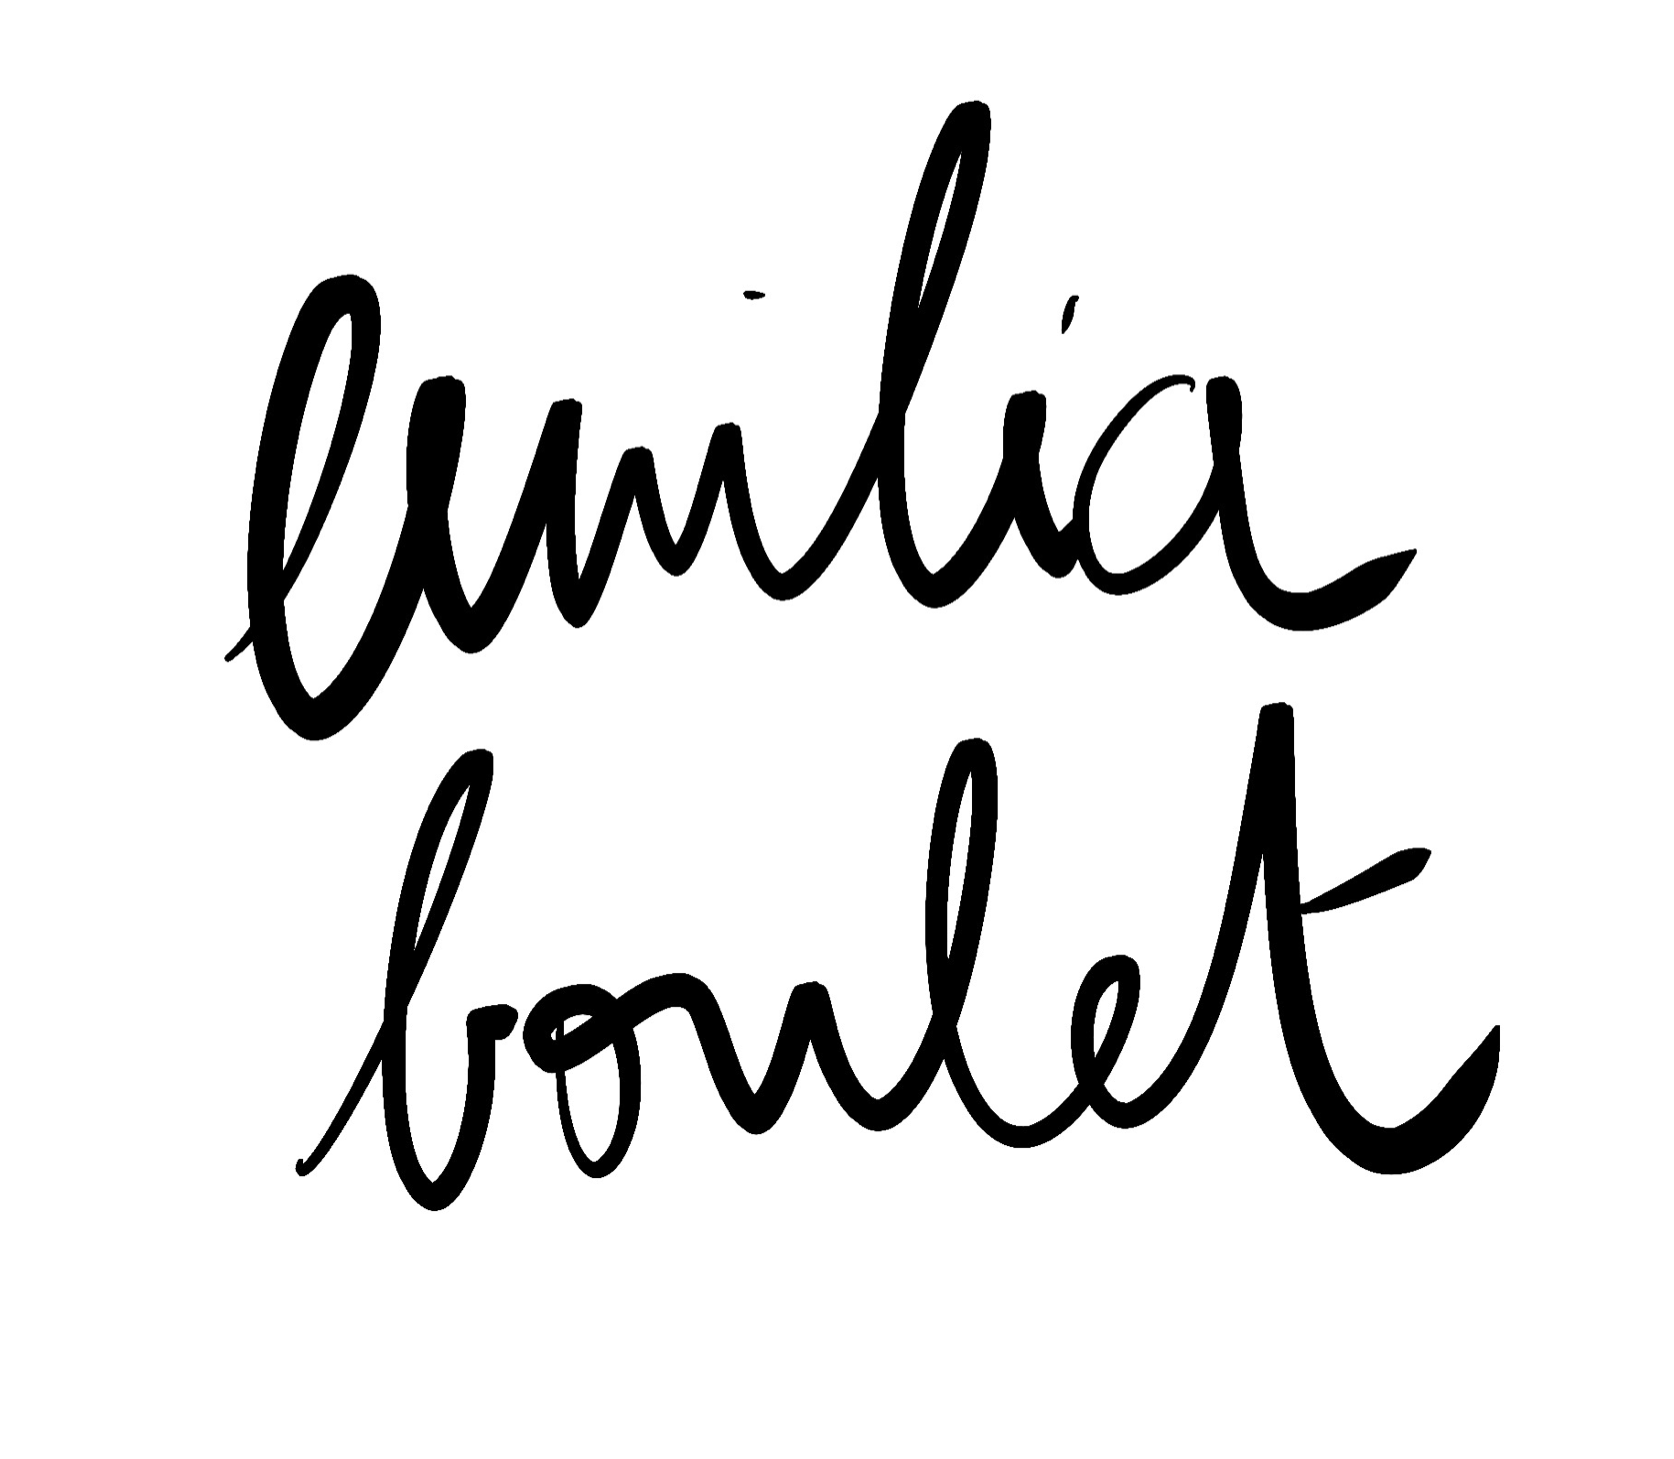 emilia
boulet